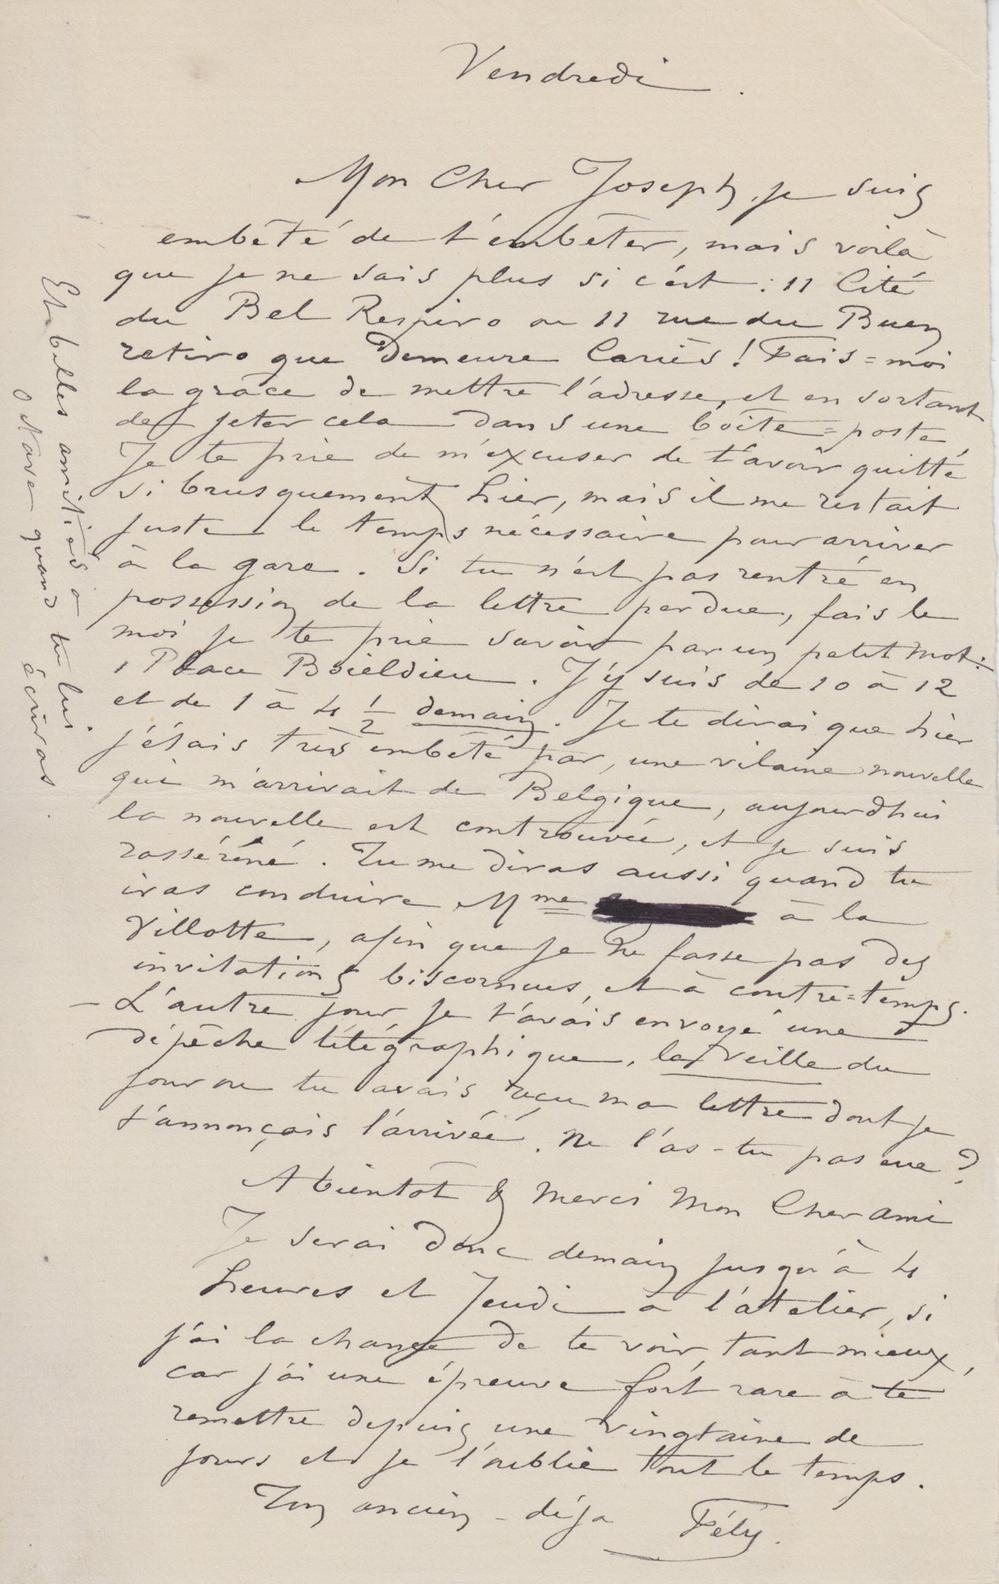 Vendredi.
Mon Cher Joseph, je suis
embêté de t'embêter, mais voilà
que je ne sais plus si c'est : 11 Cité
du Bel Respiro ou 11 rue du Buen
retiro que Demeure Cariès ! Fais=moi
la grâce de mettre l'adresse, et en sortant
de jeter cela dans une boîte=poste
Je te prie de m'excuser de t'avoir quitté
si brusquement hier, mais il me restait
juste le temps nécessaire pour arriver
à la gare. Si tu n'est pas rentré en
possession de la lettre perdue, fais le
moi je te prie savoir par un petit mot :
1 Place Boieldieu. J'y suis de 10 à 12
et de 1 à 4 ½ demain. Je te dirai que hier
j'étais très embêté par, une vilaine nouvelle
qui m'arrivait de Belgique, aujourdhui
la nouvelle est controuvée, et je suis
rasséréné. Tu me diras aussi quand tu
iras conduire Mme à la
Villotte, afin que je ne fasse pas des
invitations biscornues, et à contre=temps.
– L'autre jour je t'avais envoyé une
dépêche télégraphique, la veille du
jour ou tu avais reçu ma lettre dont je
t'annonçais l'arrivée. Ne l'as-tu pas eue ?
A bientôt & Merci Mon Cher ami
Je serai donc demain jusqu'à 4
heures et Jeudi à l'atelier, si
j'ai la chance de te voir, tant mieux,
car j'ai une épreuve fort rare à te
remettre depuis une vingtaine de
jours et je l'oublie tout le temps.
Ton ancien – déjà Fély.
Et belles amitiés à tu lui.
Octave quand écriras.